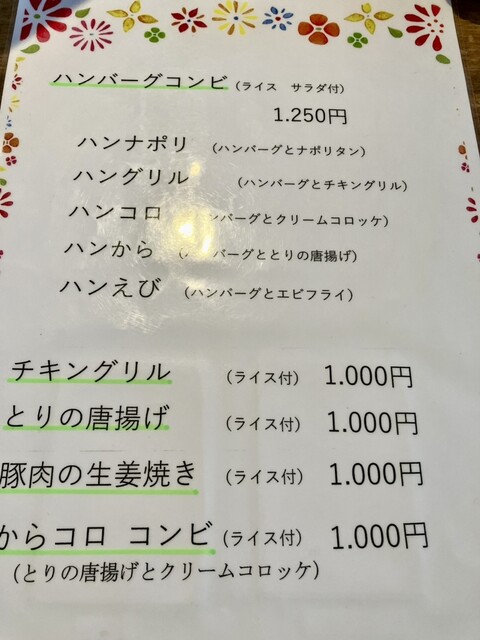 ハンバーグコンビ (ライス サラダ付)
1.250円
ハンナポリ (ハンバーグとナポリタン)
ハングリル (ハンバーグとチキングリル)
ハンコロ ンバーグとクリームコロッケ)
ハンから (ハンバーグととりの唐揚げ)
ハンえび (ハンバーグとエビフライ)
チキングリル (ライス付) 1.000円
とりの唐揚げ (ライス付) 1.000円
豚肉の生姜焼き (ライス付) 1.000円
からコロ コンビ (ライス付) 1.000円
(とりの唐揚げとクリームコロッケ)